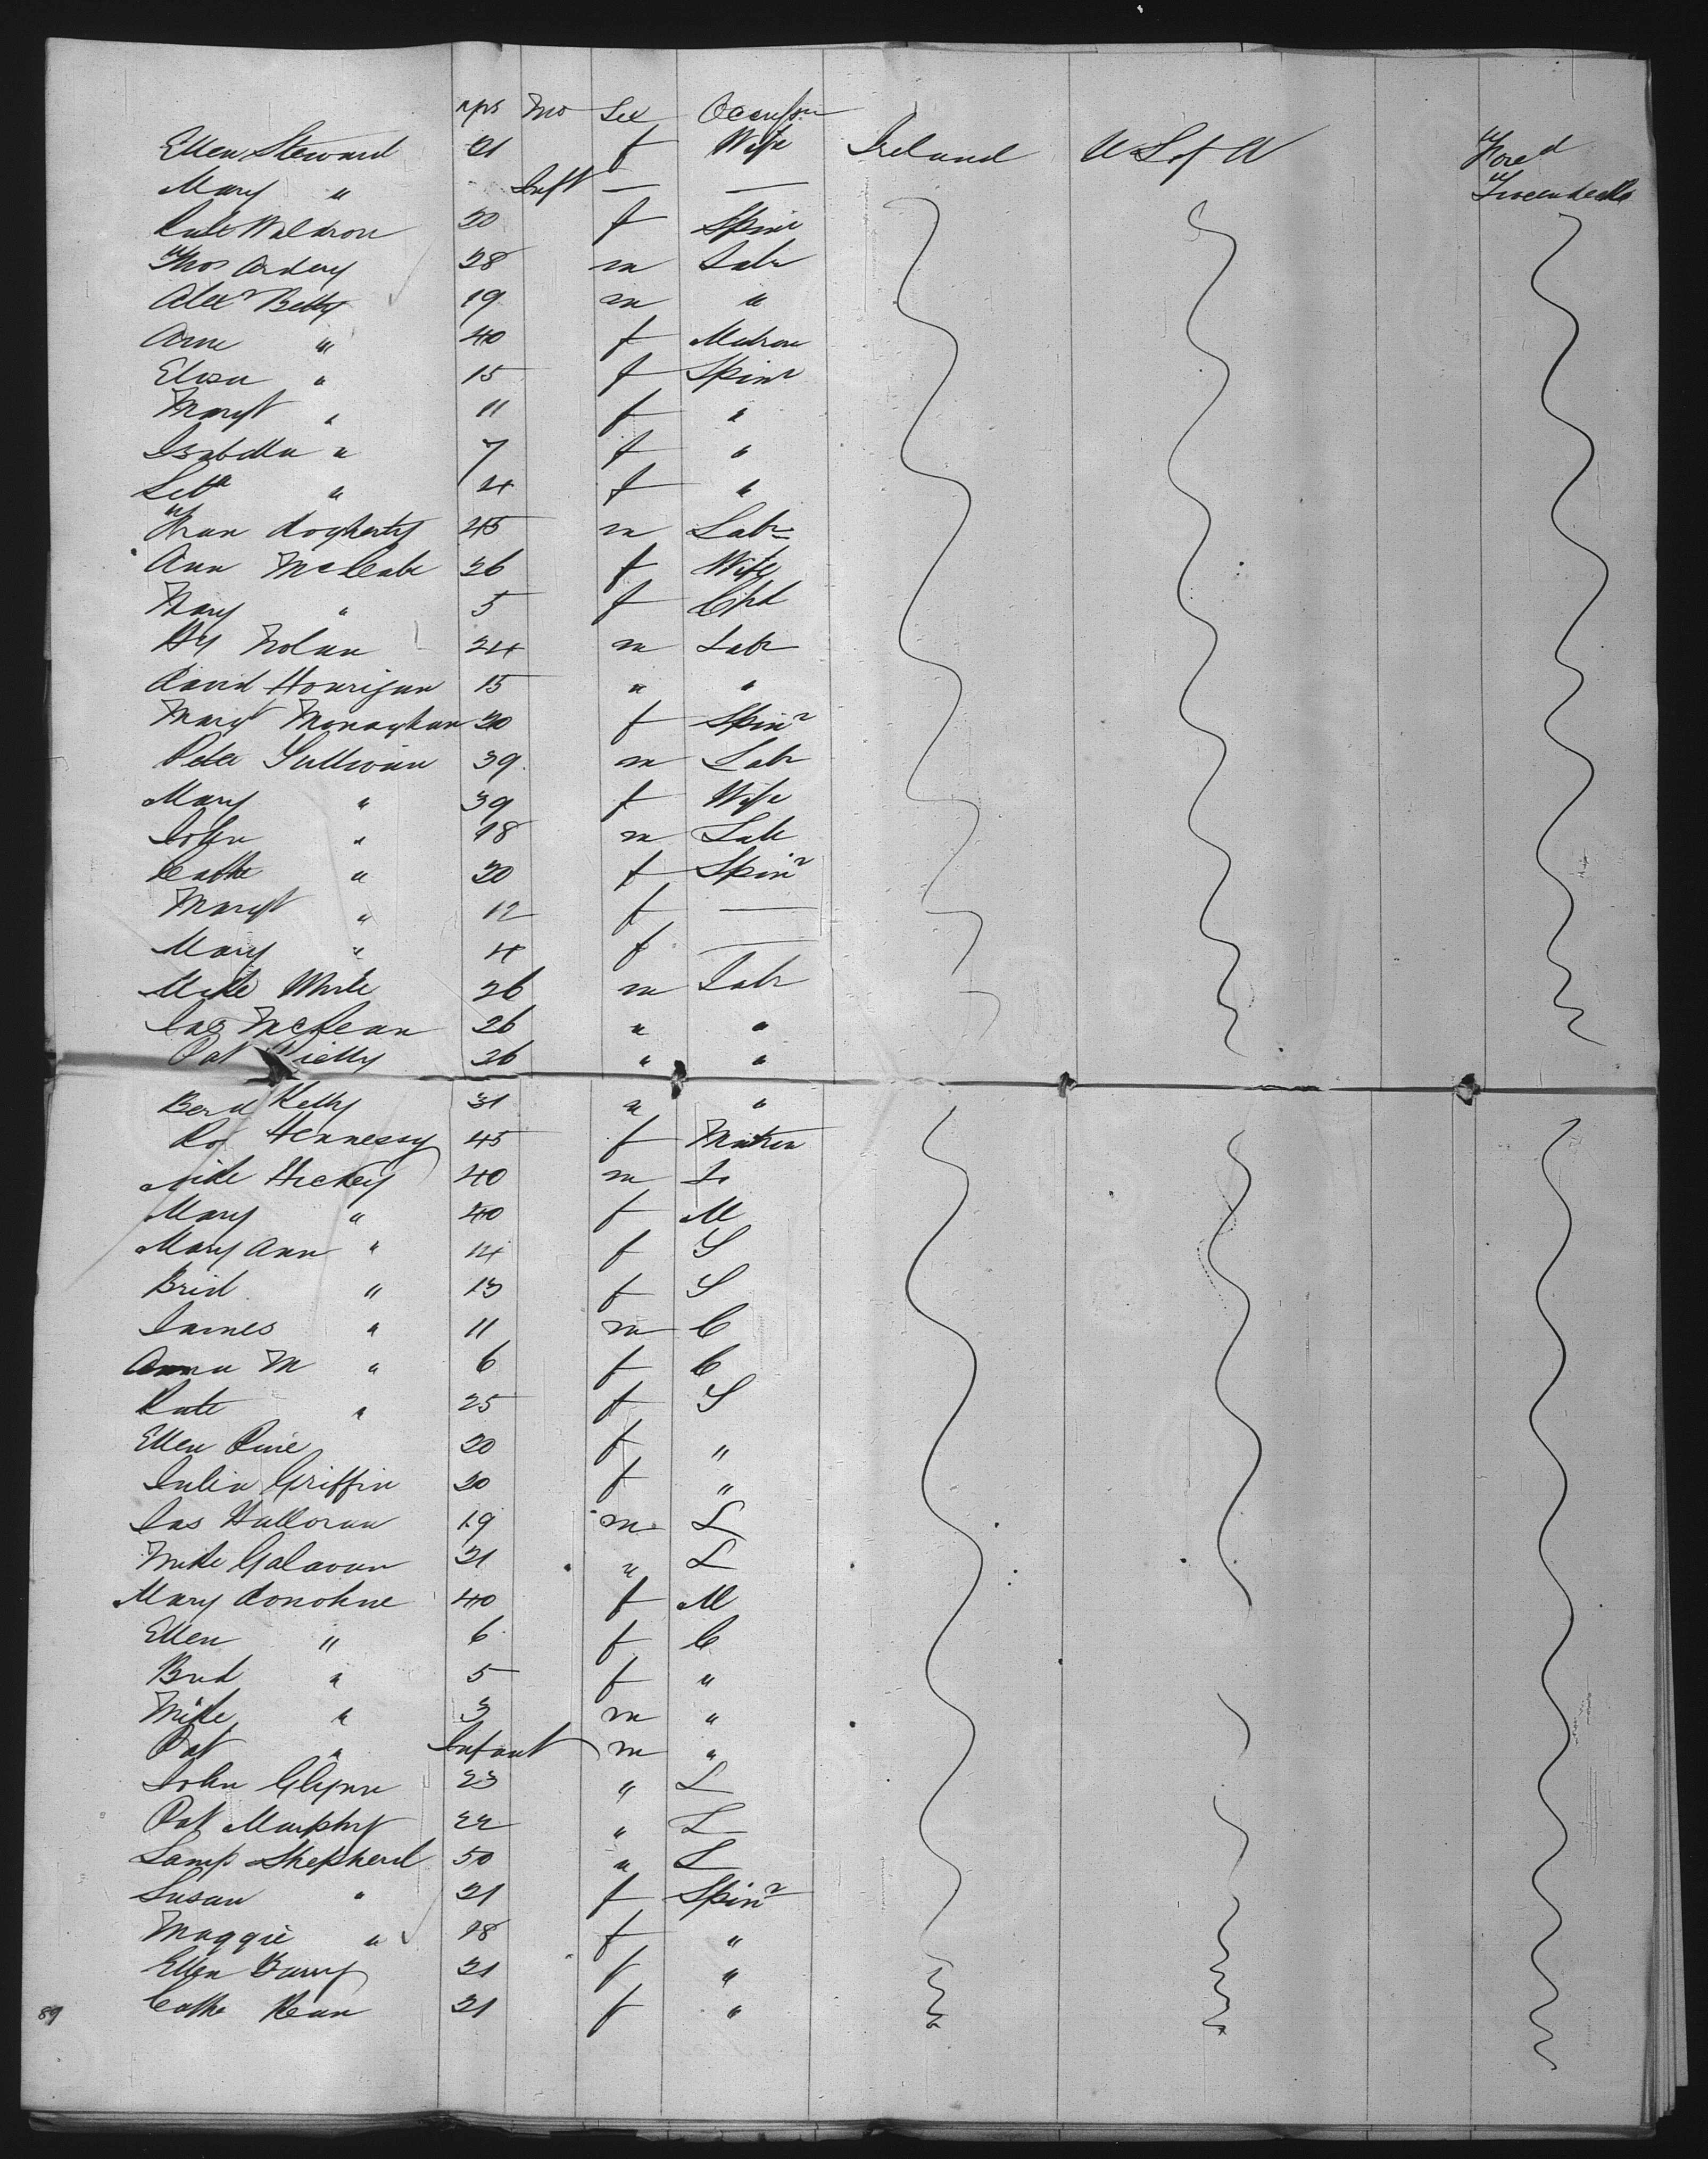 yrs Mo Sex Occupn
Ellen Steward 21 f Wife Ireland U S of A Ford
Mary " Inft — — Tweendecks
Kate Waldron 20 f Spinr
Thos Ardery 28 m Labr
Alexr Betty 19 m "
Anne " 40 f Matron
Eliza " 15 f Spinr
Margt " 11 f "
Isabella " 7 f "
Leta " 4 f "
Fran Dogherty 45 m Labr
Ann McCabe 26 f Wife
Mary " 5 f Chd
Hy Nolan 24 m Labr
David Hourigan 15 " "
Margt Monaghan 20 f Spinr
Peter Sullivan 39 m Labr
Mary " 39 f Wife
John " 18 m Lab
Cathe " 20 f Spinr
Margt " 12 f —
Mary " 4 f —
Mike White 26 m Labr
Jas McKean 26 " "
Pat Rielly 26 " "
Bernd Kelly 31 " "
Ro Hennessy 45 f Matron
Mike Hickey 40 m L
Mary " 40 f M
Mary Ann " 14 f S
Brid " 13 f S
James " 11 m C
Anna M " 6 f C
Kate " 25 f S
Ellen 20 f "
Julia Griffin 20 f "
Jas Halloran 19 m L
Mike Galavan 21 " L
Mary Donohue 40 f M
Ellen " 6 f C
Brid " 5 f "
Mike " 3 m "
Pat " Infant m "
John Glynn 23 " L
Pat Murphy 22 " L
Samp Shepherd 50 " L
Susan " 21 f Spinr
Maggie " 18 f "
Ellen Barry 21 f "
Cathe Kean 21 f "
89